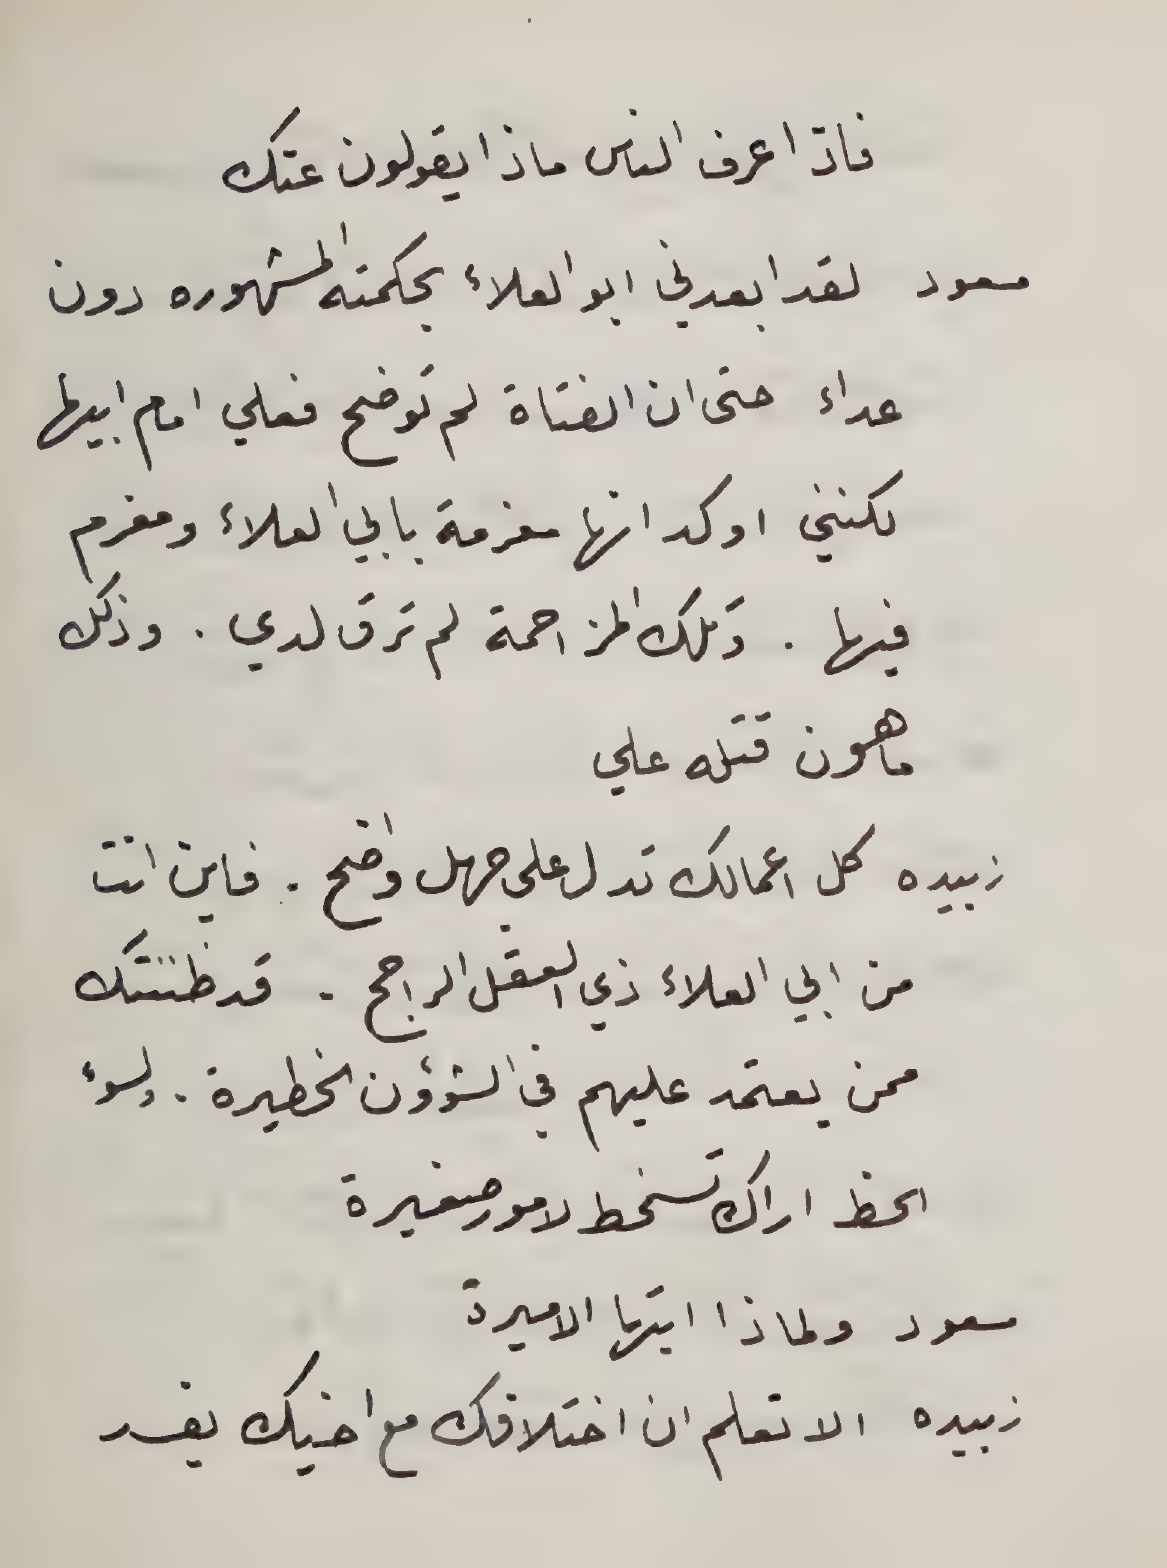 فاذا عرف الناس ماذا يقولون عنك
مسعود لقد ابعدني ابو العلاء بحكمته المشهوره دون
عداء حتى ان الفتاة لم توضح فعلي امام ابيها
لكنني اوكد انها مغرمة بابي العلاء ومغرم
فيها . وتلك المزاحمة لم ترق لدي . وذلك
ماهون قتله علي
زبيده كل اعمالك تدل على جهل واضح . فاين انت
من ابي العلاء ذي العقل الراجح . قد ظننتك
ممن يعتمد عليهم في الشؤون الخطيرة . ولسوء
الحظ اراك تسخط لامور صغيرة
مسعود ولماذا ايتها الاميرة
زبيده الا تعلم ان اختلافك مع اخيك يفسد